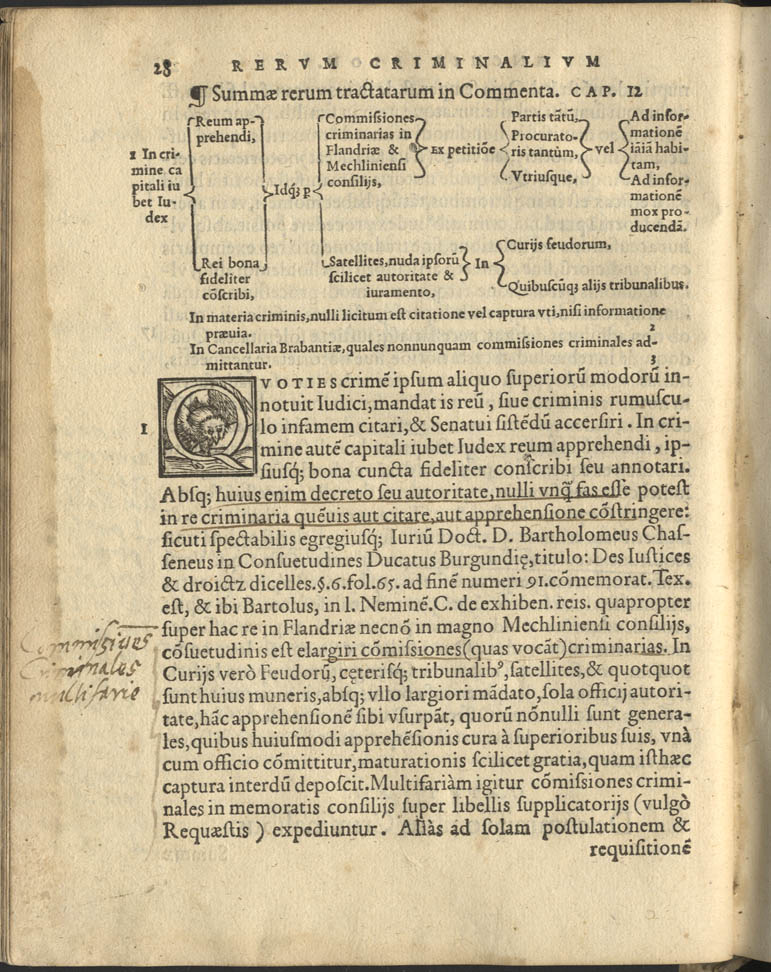 28 RERVM CRIMINALIVM
¶ Summæ rerum tractatarum in Commenta. CAP. 12
1 In cri-
mine ca
pitali iu
bet Iu-
dex
Reum ap-
prehendi,
Rei bona
fideliter
cōscribi,
Idq; ꝑ
Commiſsiones
criminarias in
Flandriæ &
Mechlinienſi
conſilijs,
Ex petitiōe
Partis tātū,
Procurato-
ris tantùm,
Vtriusque,
vel
Ad infor-
mationē
iā iā habi-
tam,
Ad infor-
mationē
mox pro-
ducendā.
Satellites, nuda ipſorū
ſcilicet autoritate &
iuramento,
In
Curijs feudorum,
Quibuſcūq; alijs tribunalibus.
In materia criminis, nulli licitum eſt citatione vel captura vti, niſi informatione
præuia. 2
In Cancellaria Brabantiæ, quales nonnunquam commiſsiones criminales ad-
mittantur. 3
QVOTIES crimē ipſum aliquo ſuperiorū modorū in-
notuit Iudici, mandat is reū, ſiue criminis rumuſcu-
1 lo infamem citari, & Senatui ſiſtēdū accerſiri. In cri-
mine autē capitali iubet Iudex reum apprehendi, ip-
ſiuſq; bona cuncta fideliter conſcribi ſeu annotari.
Abſq; huius enim decreto ſeu autoritate, nulli vnq̄ fas eſſe poteſt
in re criminaria quēuis aut citare, aut apprehenſione cōſtringere:
ſicuti ſpectabilis egregiuſq; Iuriū Doct. D. Bartholomeus Chaſ-
ſeneus in Conſuetudines Ducatus Burgundię, titulo: Des Iuſtices
& droictz dicelles. §. 6. fol. 65. ad finē numeri 91. cōmemorat. Tex.
eſt, & ibi Bartolus, in l. Neminē. C. de exhiben. reis. quapropter
ſuper hac re in Flandriæ necnō in magno Mechlinienſi conſilijs,
cōſuetudinis eſt elargiri cōmiſsiones (quas vocāt) criminarias. In
Commiſsiones
Criminales
multifarie
Curijs verò Feudorū, cęteriſq; tribunalibꝰ, ſatellites, & quotquot
ſunt huius muneris, abſq; vllo largiori mādato, ſola officij autori-
tate, hāc apprehenſionē ſibi vſurpāt, quorū nōnulli ſunt genera-
les, quibus huiuſmodi apprehēſionis cura à ſuperioribus ſuis, vnà
cum officio cōmittitur, maturationis ſcilicet gratia, quam iſthæc
captura interdū depoſcit. Multifariàm igitur cōmiſsiones crimi-
nales in memoratis conſilijs ſuper libellis ſupplicatorijs (vulgò
Requæſtis) expediuntur. Aliàs ad ſolam poſtulationem &
requiſitionē